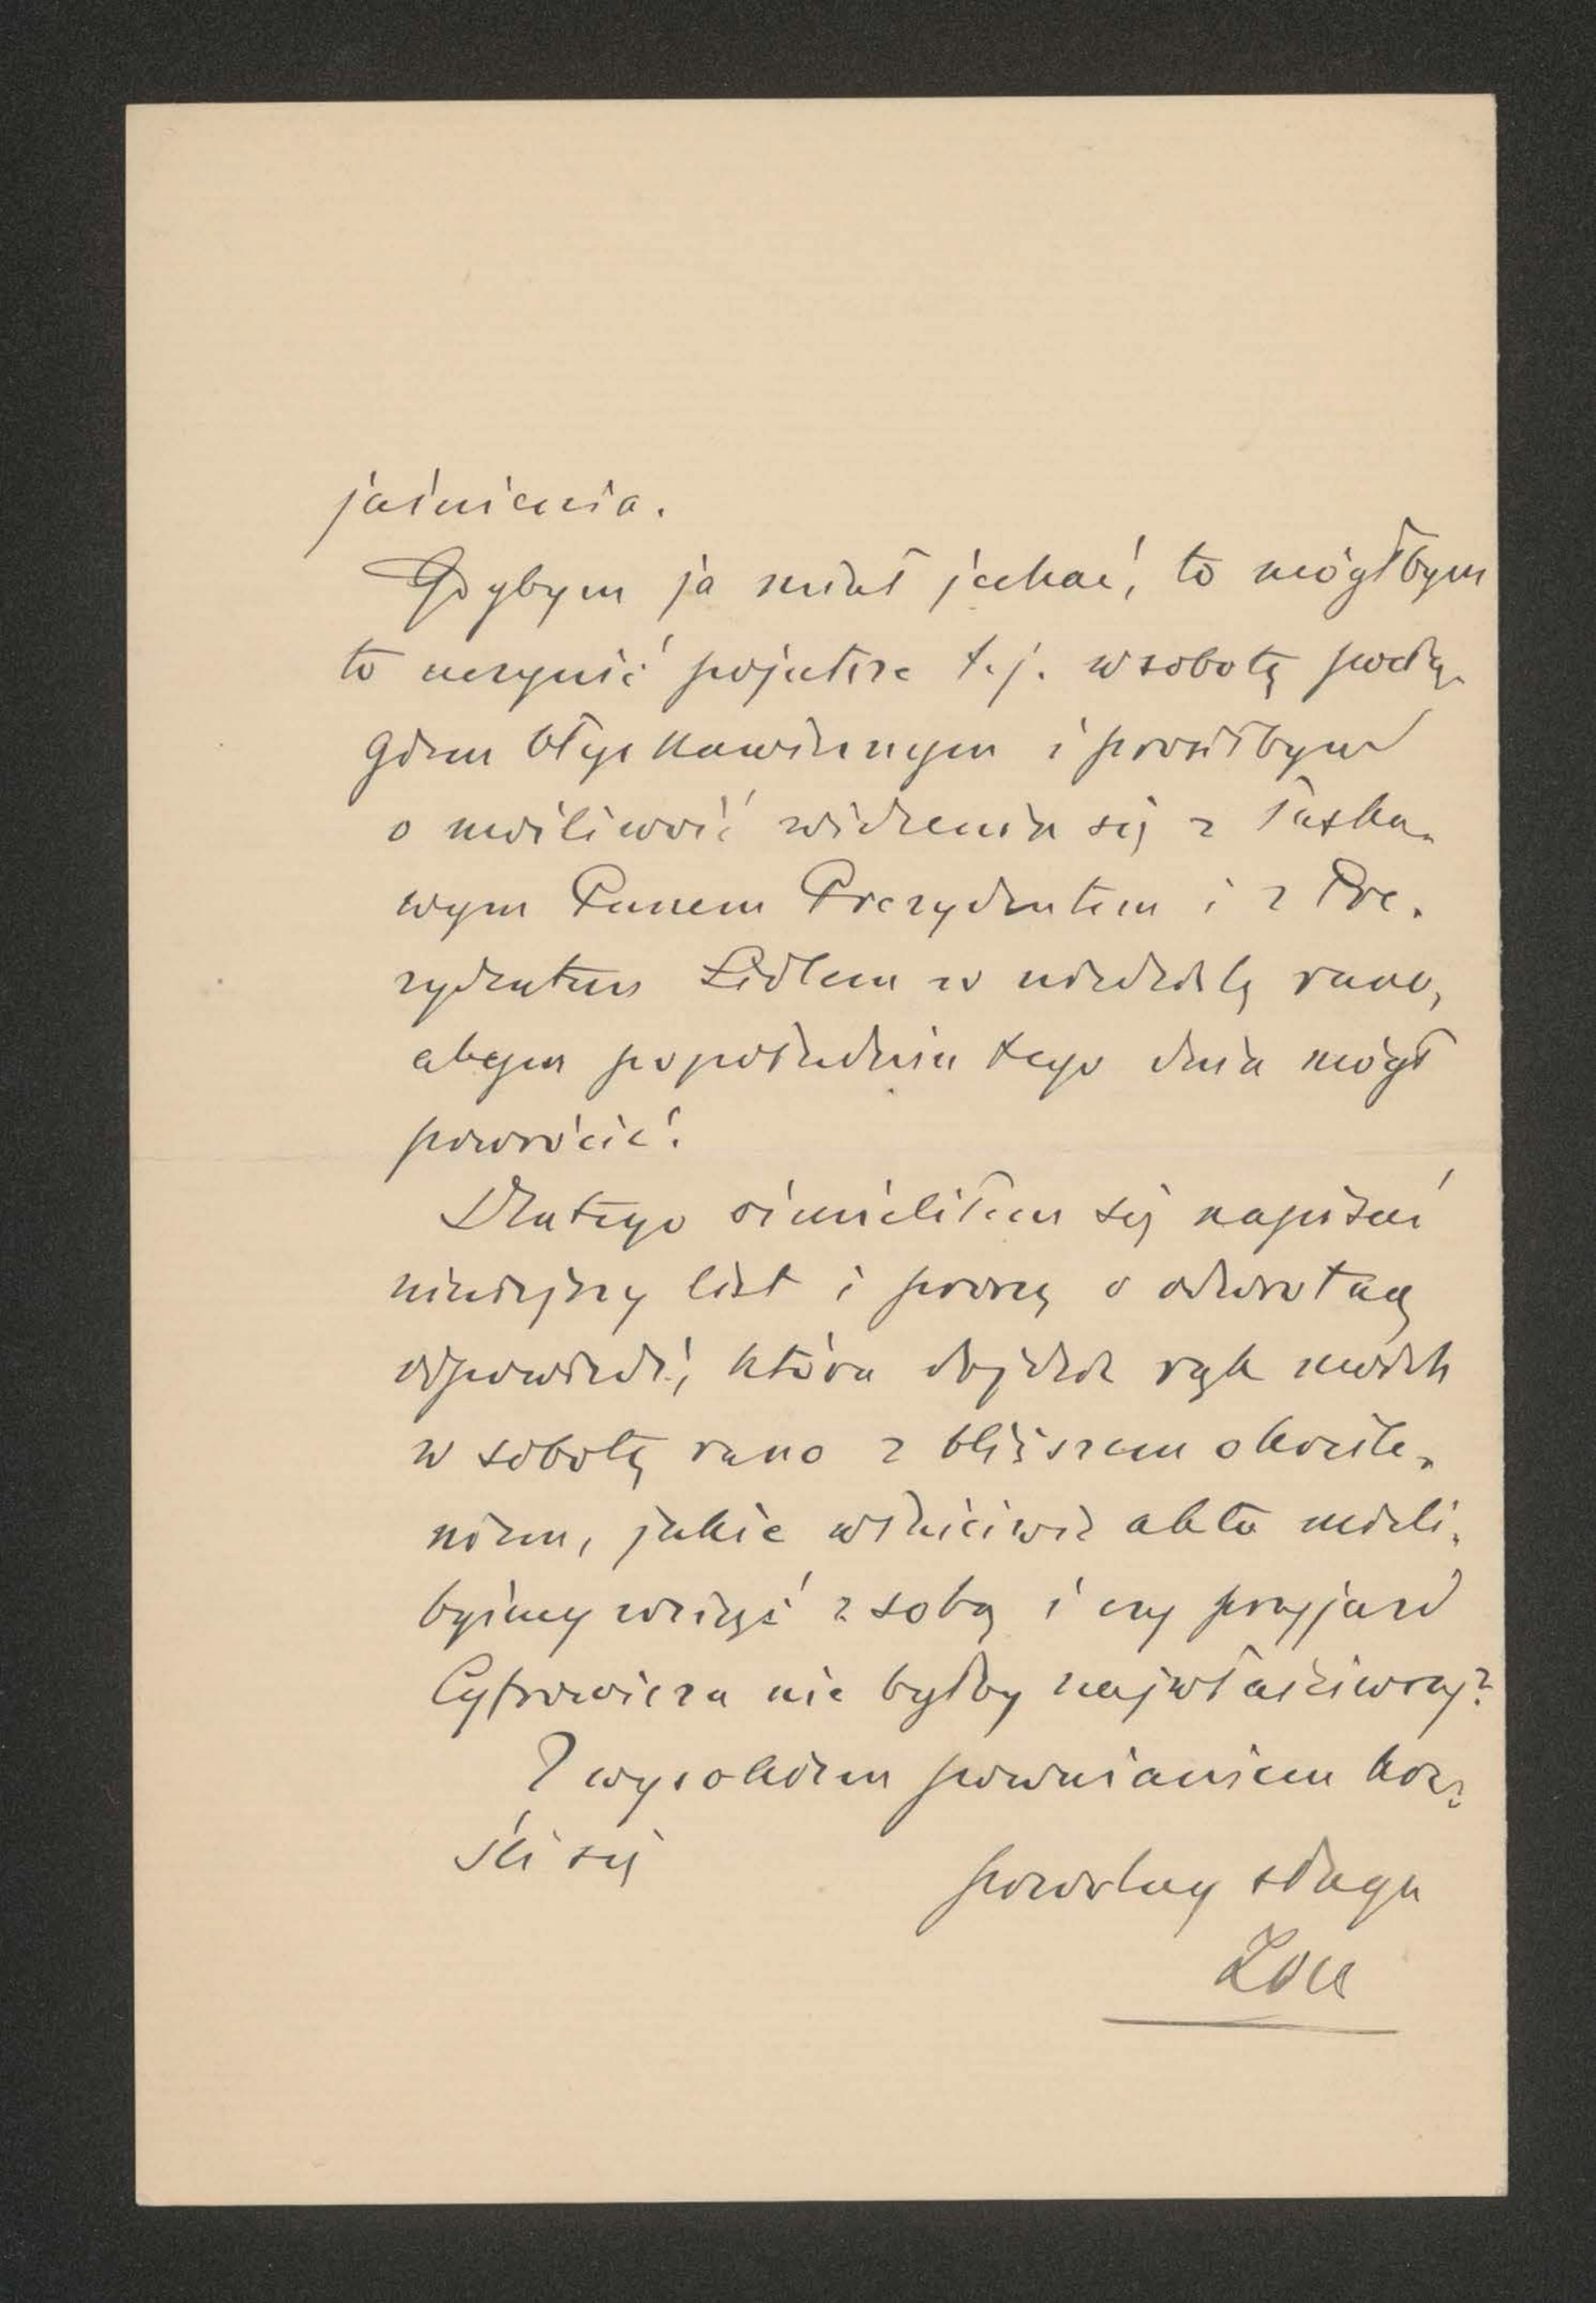 jaśnienia.
Gdybym ja miał jechać, to mógłbym
to uczynić pojutrze t.j. w sobotę pocią-
giem błyskawicznym i prosiłbym
o możliwość widzenia się z łaska-
wym Panem Prezydentem i z Pre-
zydentem Lidlem w niedzielę rano,
abym popołudniu tego dnia mógł
powrócić.
Dlatego ośmieliłem się napisać
niniejszy list i proszę o odwrotną
odpowiedź, która dojdzie rąk moich
w sobotę rano z bliższem określe-
niem, jakie właściwie akta mieli-
byśmy wziąć z sobą i czy przyjazd
Cyfrowicza nie byłby najwłaściwszy?
Z wysokiem poważaniem kre-
śli się
powolny sługa